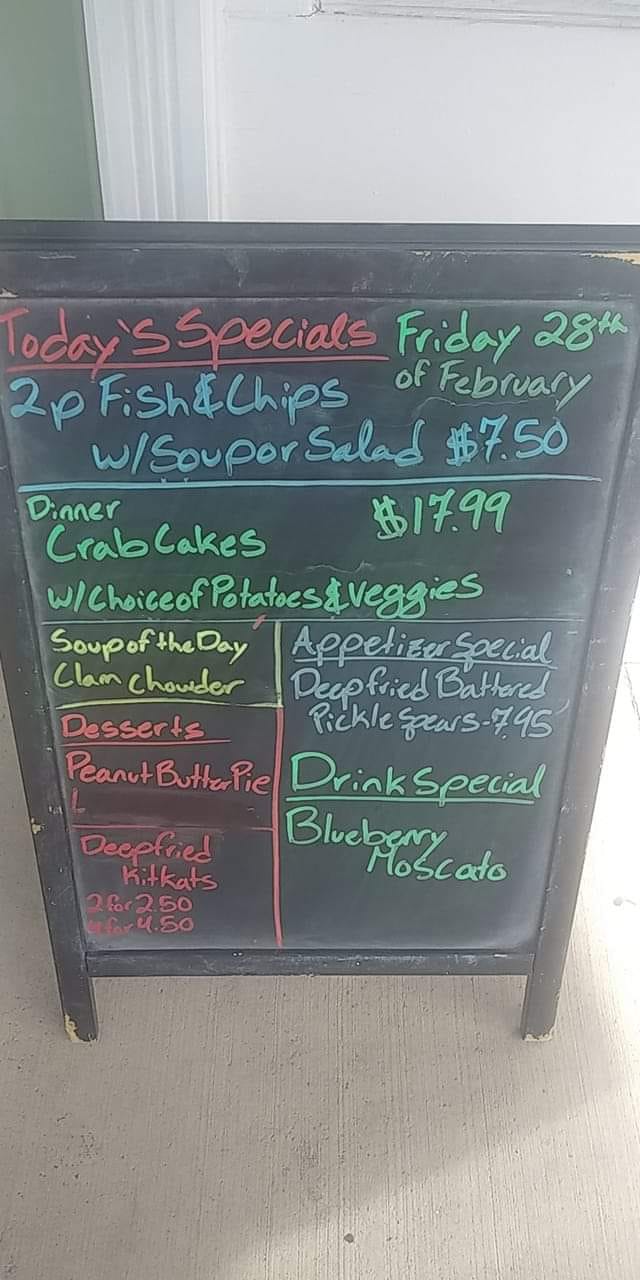 Today's Specials
Friday 28th
of February
2p Fish & Chips
w/Soup or Salad $7.50
Dinner
Crab Cakes
$17.99
w/Choice of Potatoes & Veggies
Soup of the Day
Clam Chowder
Desserts
Peanut Butter Pie
Deepfried
Kitkats
2 for 2.50
4 for 4.50
Appetizer Special
Deep fried Battered
Pickle Spears-7.95
Drink Special
Blueberry
Moscato